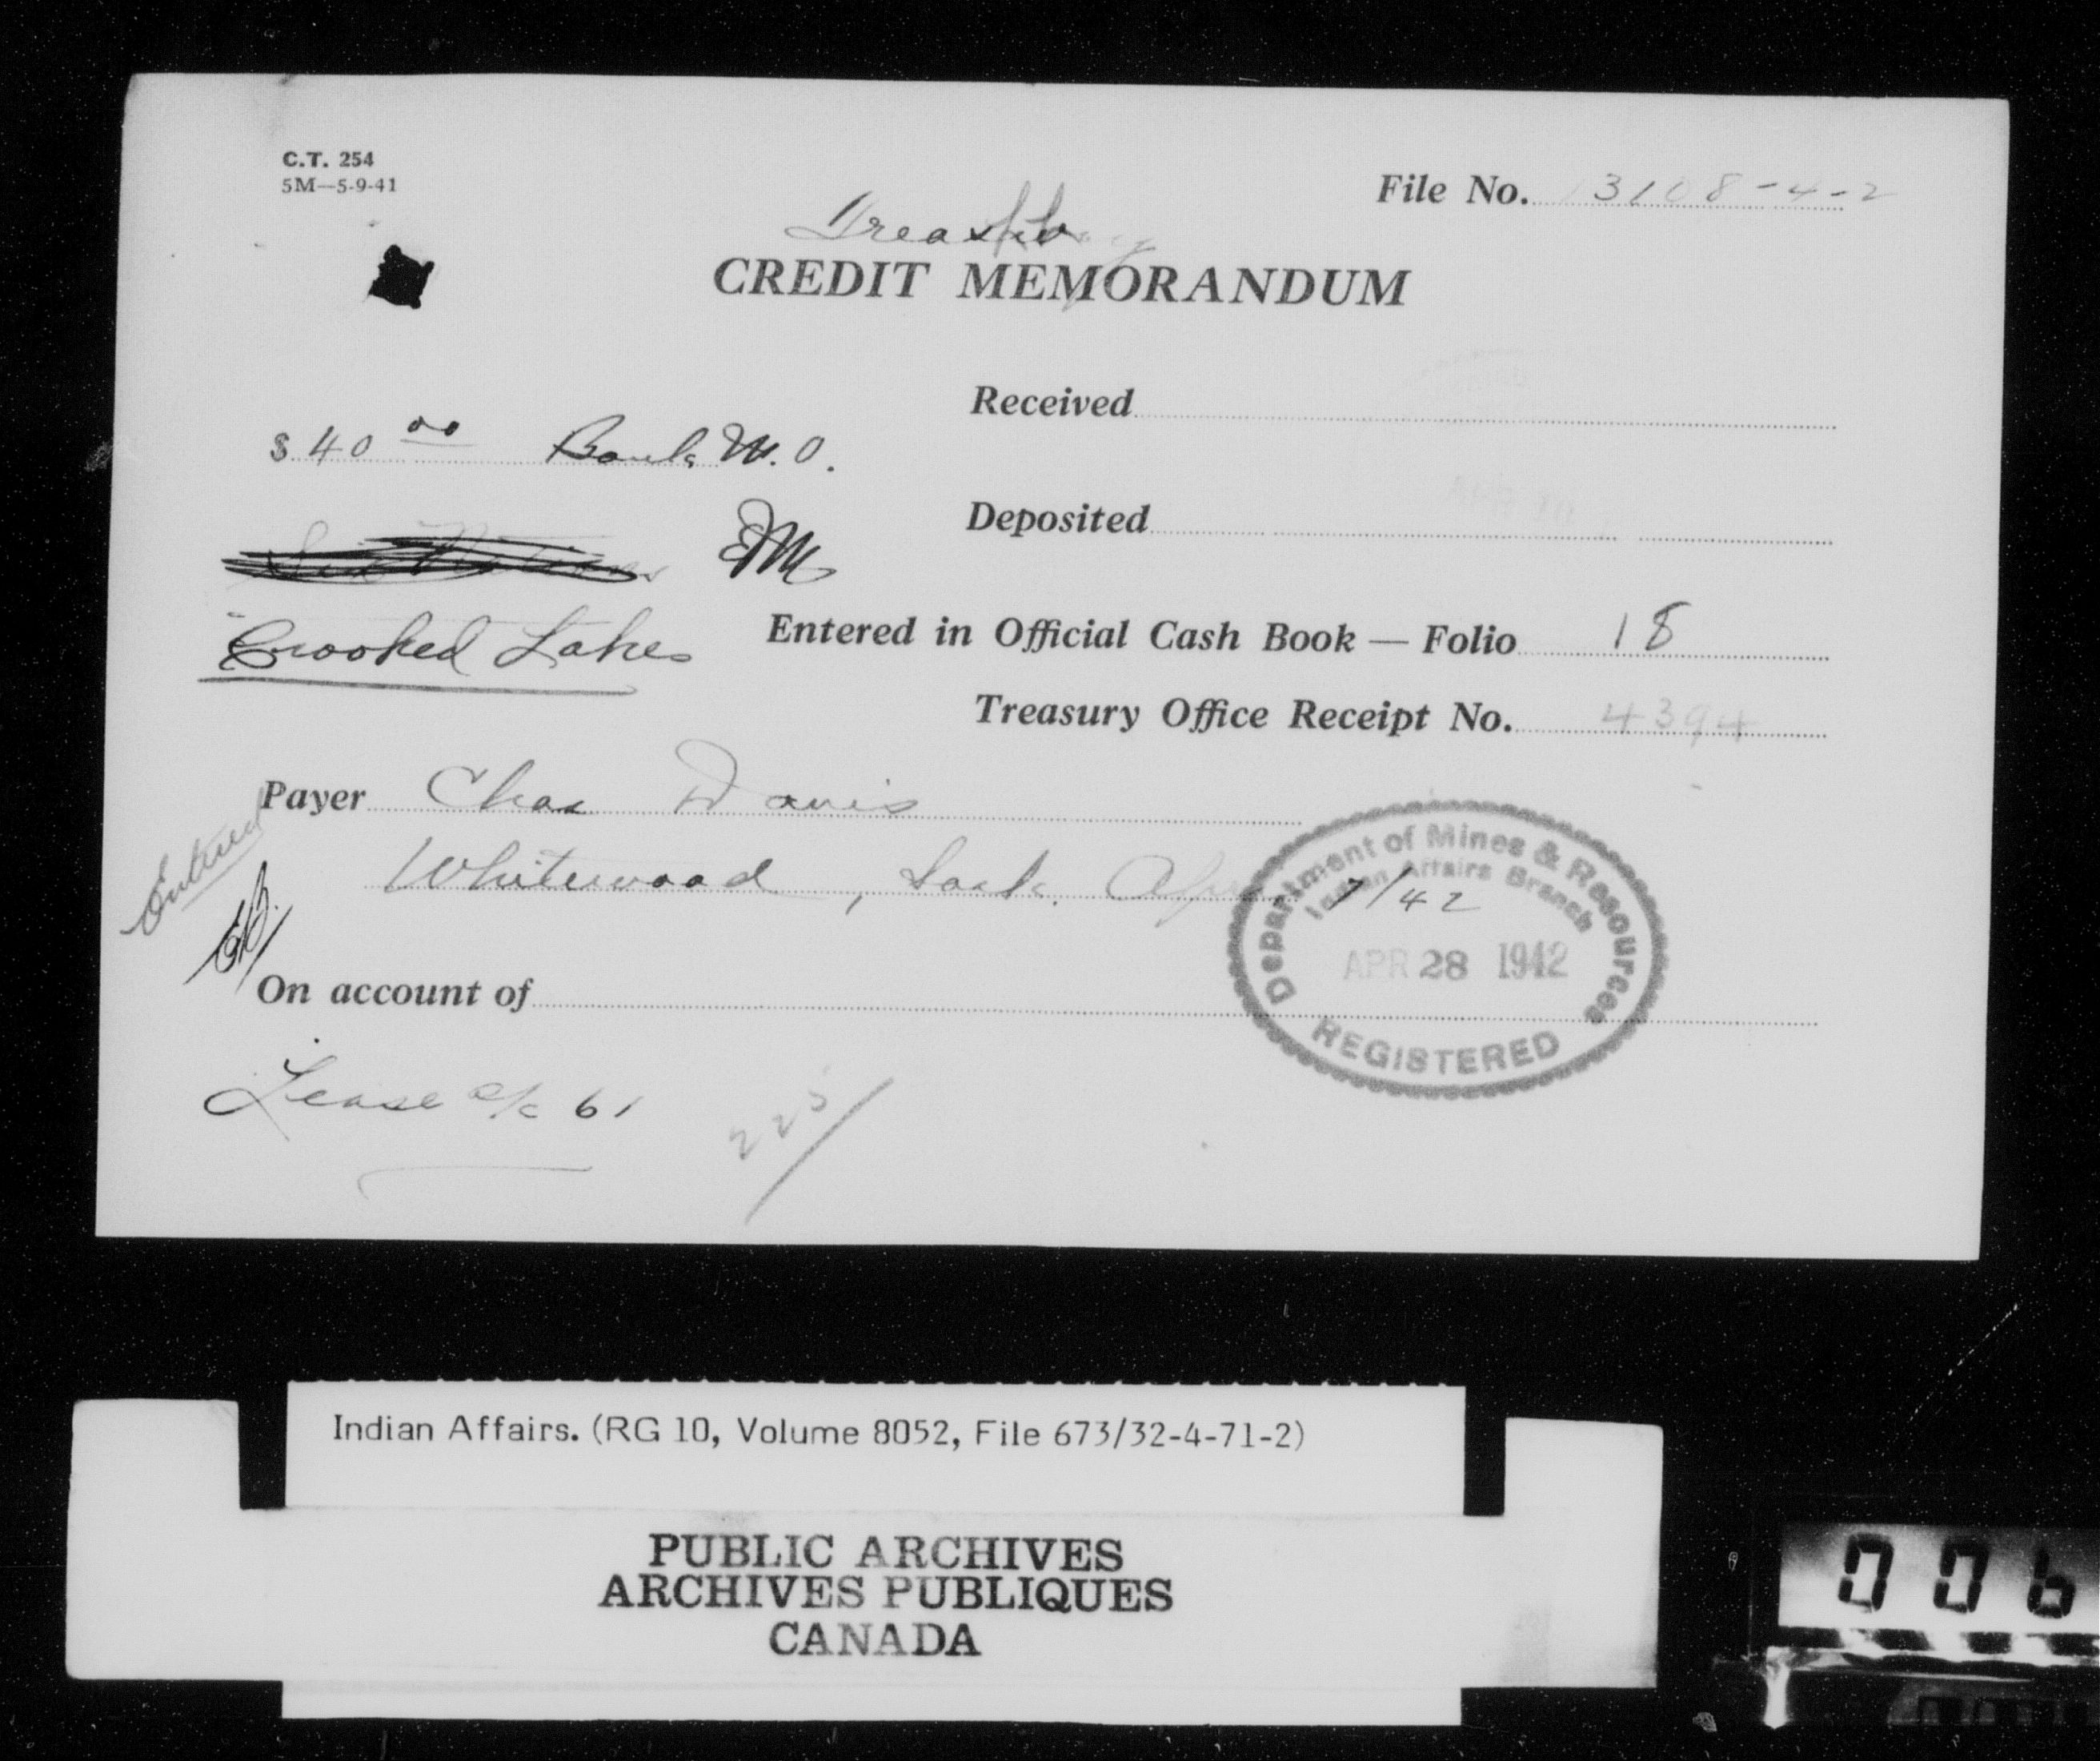 C.T. 254
5M—5-9-41
File No. 13108-4-2
CREDIT MEMORANDUM
Received
$ 40 00 Bank M.O.
Deposited
Crooked Lakes
Entered in Official Cash Book — Folio 18
Treasury Office Receipt No. 4394
Payer Chas Davis
Entered
Whitewood, Sask. Apr 7/42
Department of Mines & Resources
Indian Affairs Branch
APR 28 1942
REGISTERED
On account of
Lease a/c 61
225
Indian Affairs. (RG 10, Volume 8052, File 673/32-4-71-2)
PUBLIC ARCHIVES
ARCHIVES PUBLIQUES
CANADA
006